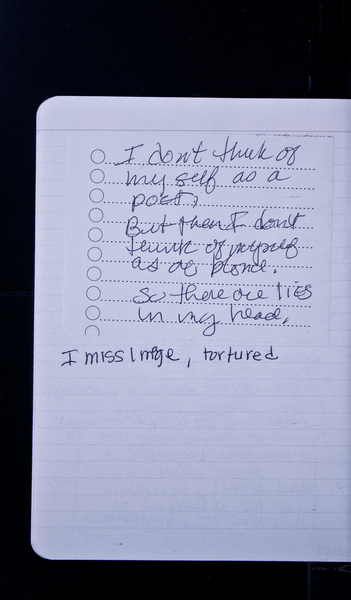 I dont think of
my self as a
poet,
But then I dont
think of myself
as a blonde.
So there are lies
in my head.
I miss Inge, tortured